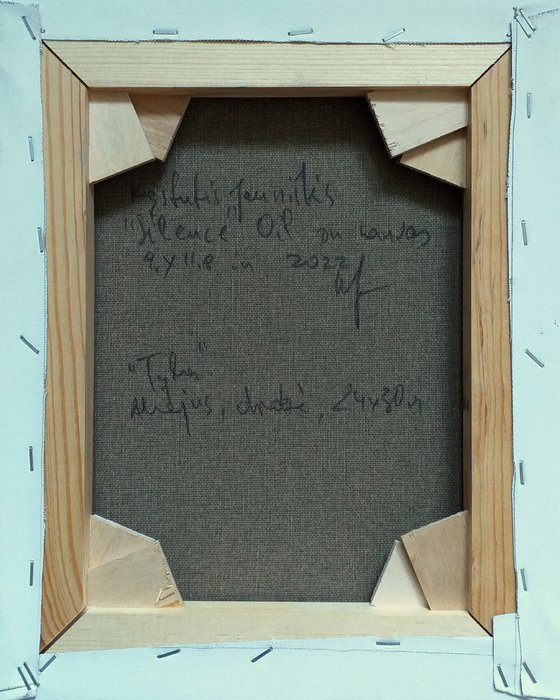 Kęstutis Jauniškis
"Silence" Oil on canvas
9,4 x 11,8 in 2022
"Tyla"
aliejus, drobė, 24x30cm